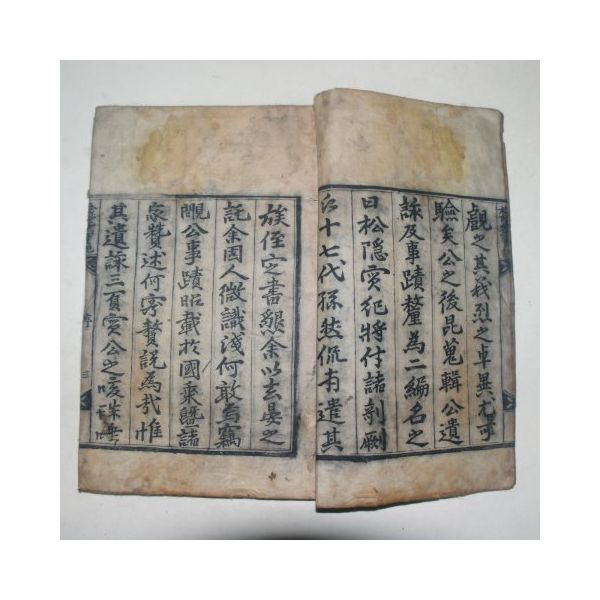 觀之其義烈之卓異尤可
驗矣公之後昆蒐輯公遺
詠及事蹟釐為二編名之
曰松隱實紀將付諸剞劂
十七代孫 侃甫遣其
族侄 之書懇余以玄晏之
託余固人微識淺何敢焉竊
覵公事蹟昭載於國乘曁諸
家贊述何容贅說為哉惟
其遺詠三頁實公之咳唾
序
三